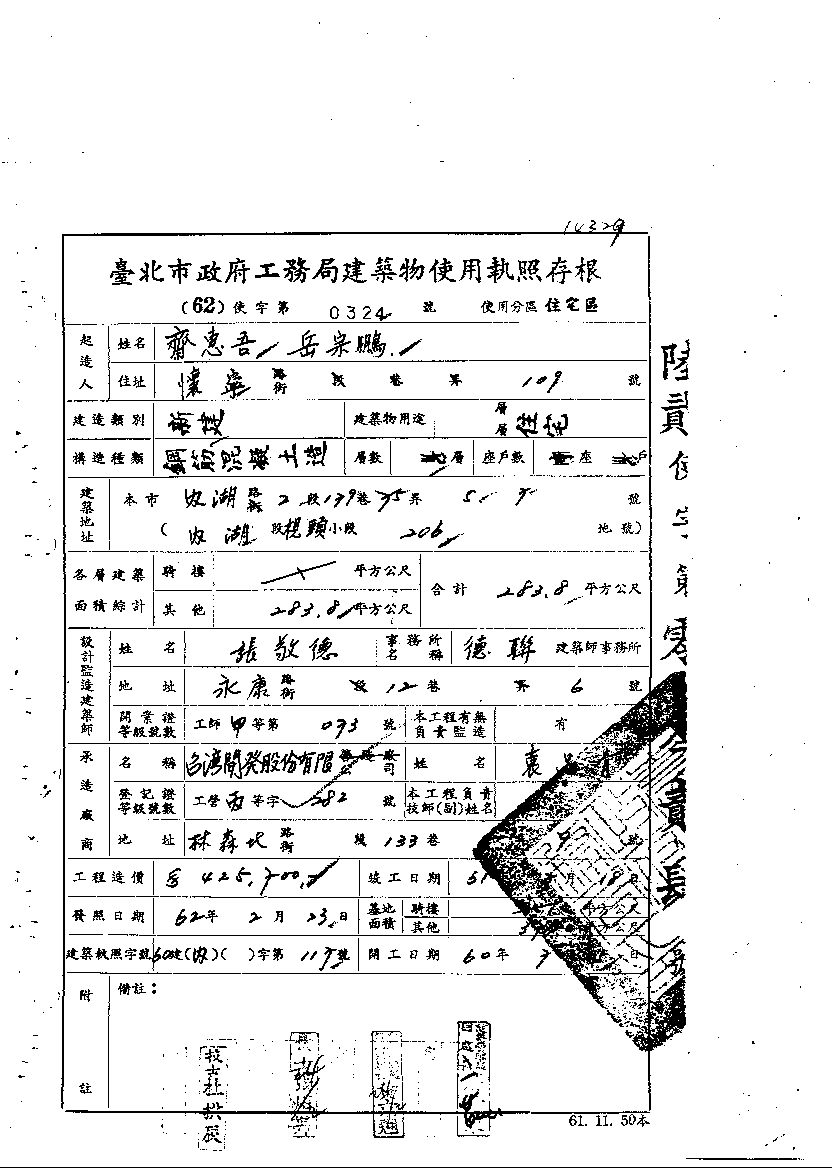 14329
臺北市政府工務局建築物使用執照存根
(62)使字第 0324 號 使用分區 住宅區
起造人 姓名 齊惠吾 岳宗鵬
住址 懷寧 路街 段 巷 弄 109 號
建造類別 新建 建築物用途 層層 住宅
構造種類 鋼筋混凝土造 層數 層 座戶數 座 戶
建築地址 本市 內湖 路街 2 段 139 巷 35 弄 5. 7 號
( 內湖 段 視頭 小段 206 地號)
各層建築面積綜計 騎樓 平方公尺 合計 283.8 平方公尺
其他 283.8 平方公尺
設計監造建築師 姓名 張敬德 事務所名稱 德聯 建築師事務所
地址 永康 路街 段 12 巷 弄 6 號
開業證等級號數 工師 甲 等第 093 號 本工程有無負責監造 有
承造廠商 名稱 台灣開發股份有限公司 姓名 袁
登記證等級號數 工營 丙 等字 382 號 本工程負責技師(副)姓名
地址 林森北 路街 段 133 巷 號
工程造價 425,700 竣工日期 61 月 18 日
發照日期 62 年 2 月 23 日 基地面積 騎樓 平方公尺
其他
建築執照字號 60 建(內)( )字第 117 號 開工日期 60 年 日
附註 備註：
技士杜拱辰
61. 11. 50本
陸貳使字第零
貳